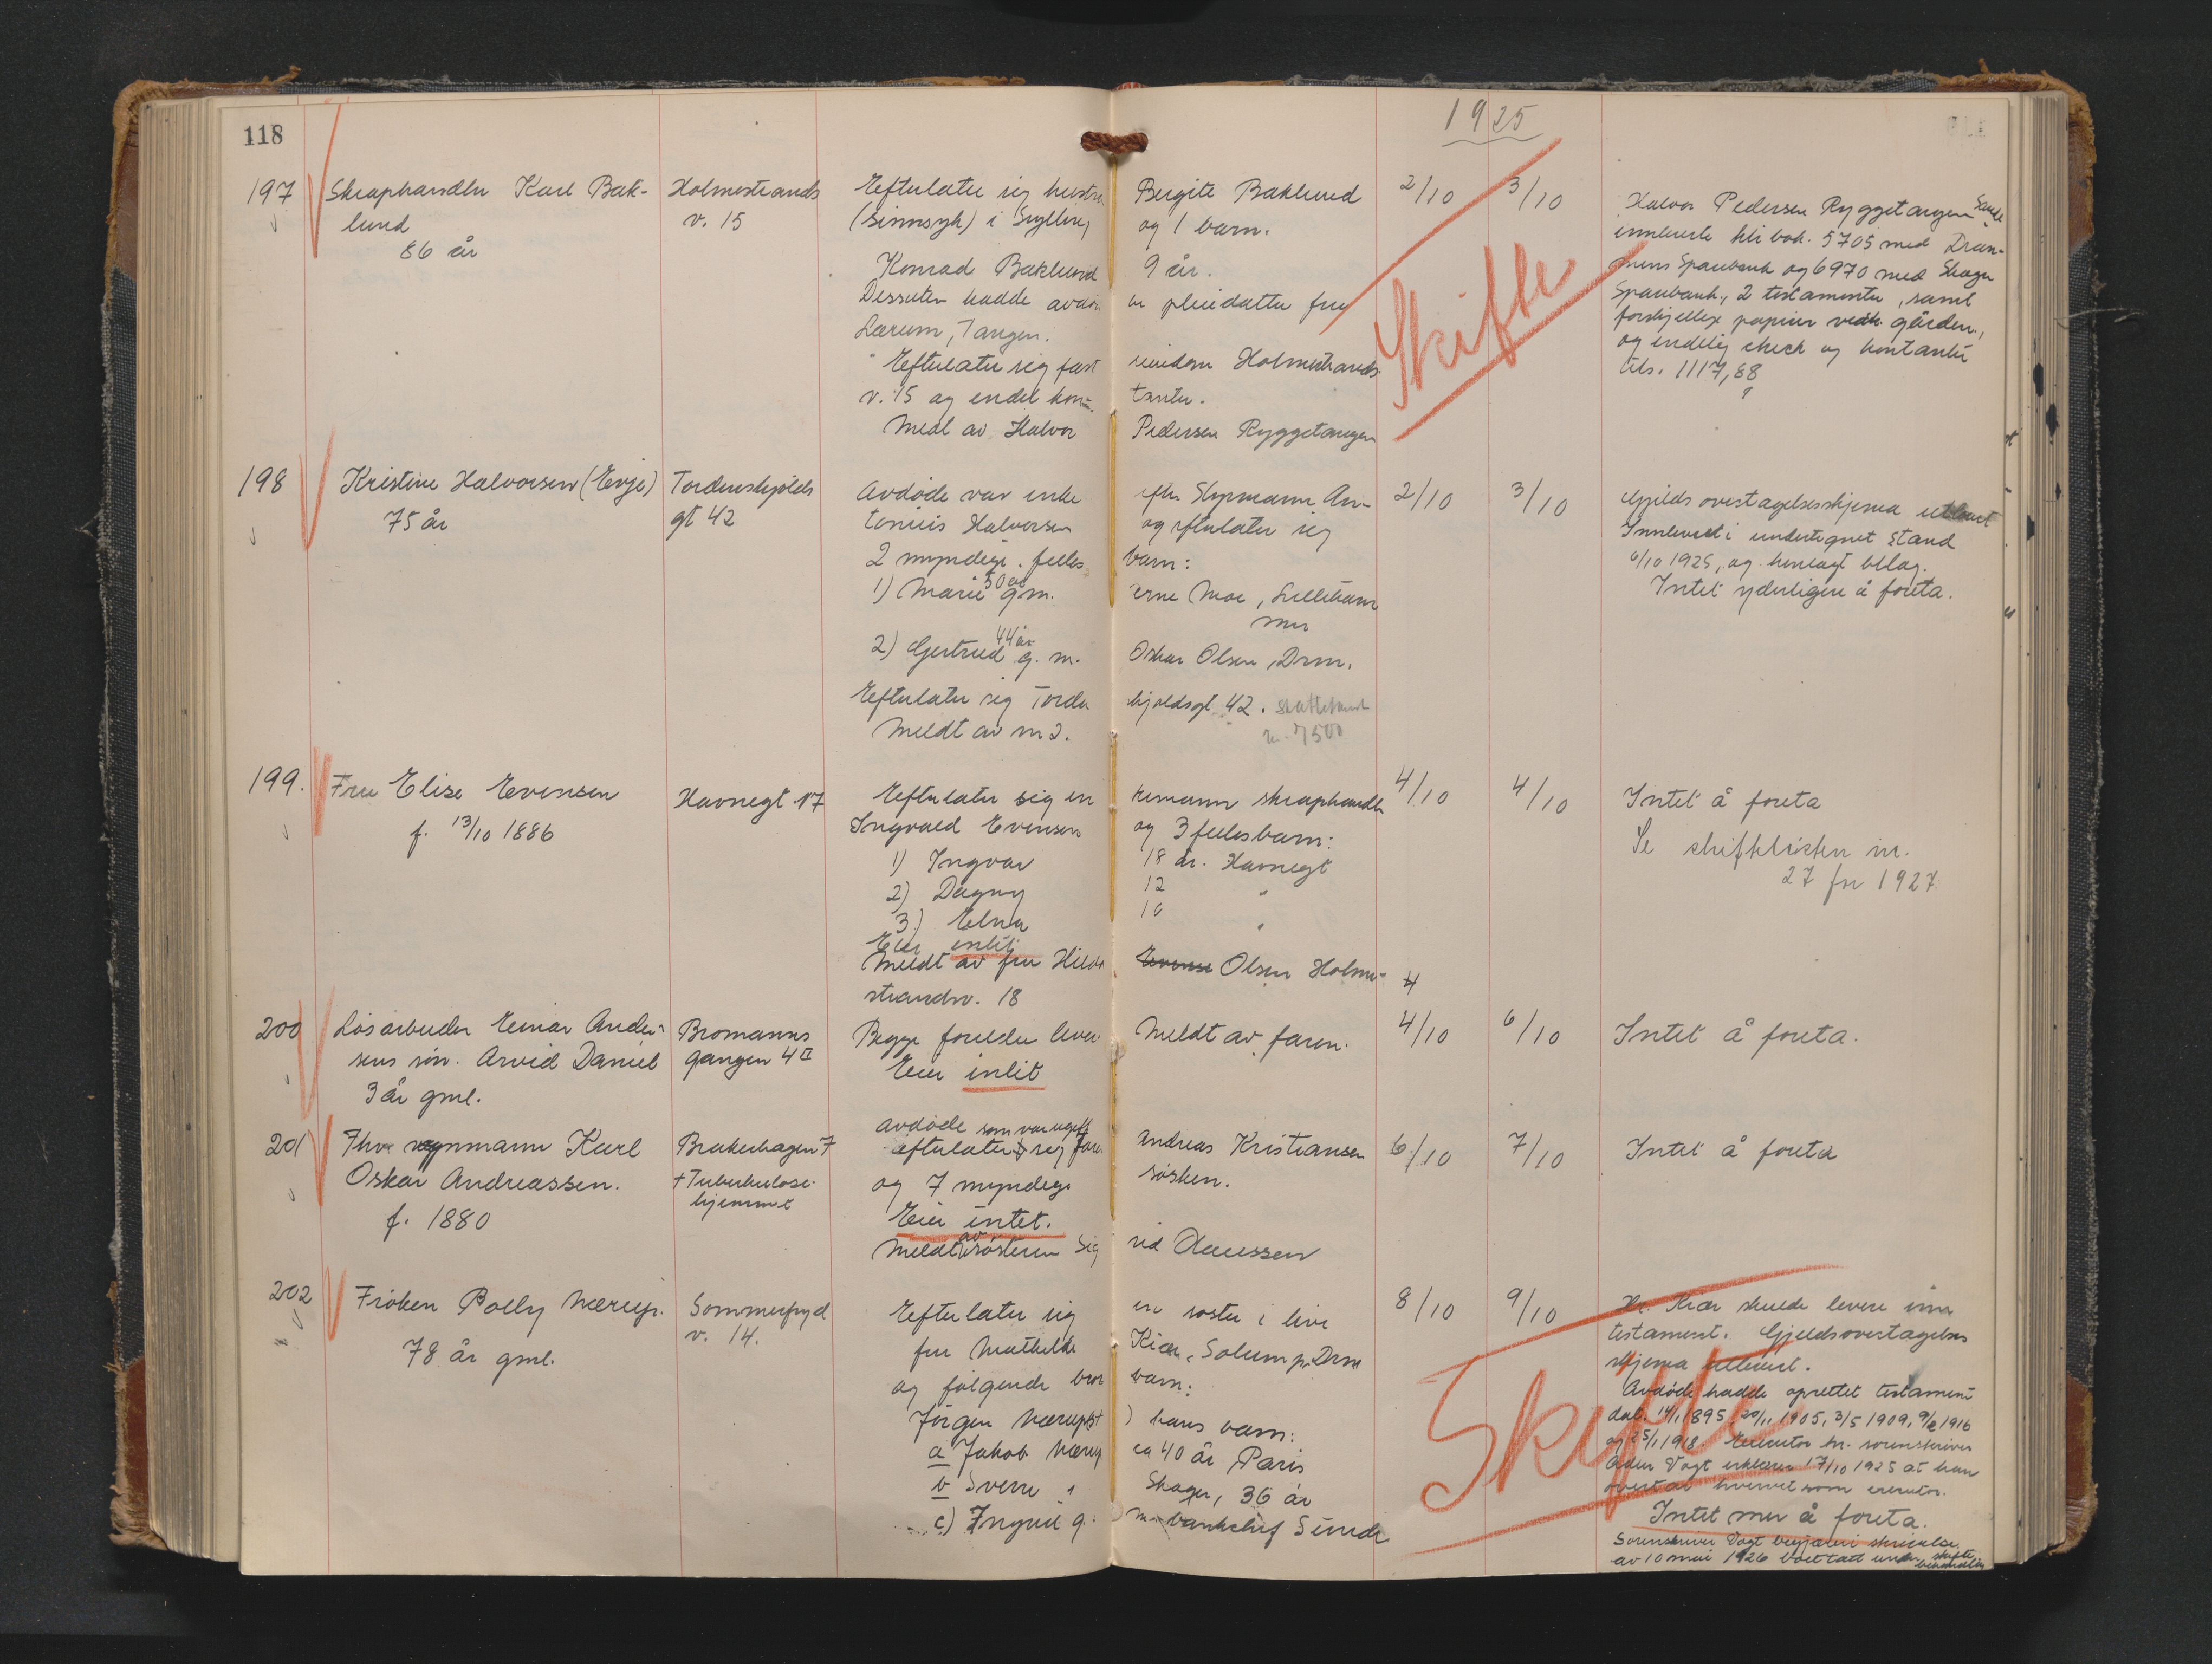 118
1925
197 Skraphandler Karl Bak-
lund
86 år
Holmestrands
v. 15
Efterlater sig hustru Birgite Baklund
(sinnssyk) i Sylling og 1 barn.
Konrad Baklund 9 år.
Dessuten hadde avdøde en pleiedatter fru
Lærum, Tangen.
Efterlater sig fast eiendom Holmestrands
v. 15 og endel kontanter.
Meldt av Halvor Pedersen Ryggetangen
2/10 3/10
Skifte
Halvor Pedersen Ryggetangen Sande
innleverte bok. 5705 med Dram-
mens Sparebank og 6970 med Skoger
Sparebank, 2 testamenter, samt
forskjellige papirer vedk. gården,
og endelig check og kontanter
tils. 1117,88
198 Kristine Halvorsen (Evje)
75 år
Tordenskjolds
gt 42
Avdøde var enke efter Styrmann An-
tonius Halvorsen og efterlater sig
2 myndige felles barn:
1) Marie 50 år g.m. Arne Moe, Lilleham
mer
2) Gertrud 44 år g.m. Oskar Olsen, Drm.
Efterlater sig Tordenskjoldsgt 42. skattetakst
kr. 7500
Meldt av nr 2.
2/10 3/10
Gjelds overtagelsesskjema utlevert
Innlevert i undertegnet stand
6/10 1925, og henlagt bilag.
Intet yderligere å foreta.
199. Fru Elise Evensen
f. 13/10 1886
Havnegt 17
Efterlater sig en kemann skraphandler
Ingvald Evensen og 3 fellesbarn:
1) Ingvar 18 år. Havnegt
2) Dagny 12 "
3.) Elna 10 "
Eier intit
Meldt av fru Hilda Evensen Olsen Holme-
strandsv. 18
4/10 4/10
Intet å foreta
Se skiftelisten nr.
27 for 1927
200 Løsarbeider Einar Ander-
sens søn. Arvid Daniel
3 år gml.
Bromanns
gangen 4 II
Begge foreldre lever Meldt av faren.
Eier intit
4/10 6/10
Intet å foreta.
201 Fhv. vognmann Karl
Oskar Andreassen.
f. 1880
Brakerhagen 7
+ Tuberkulose-
hjemmet
Avdøde som var ugift
efterlater sig faren Andreas Kristiansen
og 7 myndige søsken.
Eier intet.
Meldt av søsteren Sigrid Claussen
6/10 7/10
Intet å foreta
202 Frøken Polly Nærup.
78 år gml.
Sommerfryd
v. 14.
Efterlater sig en søster i live
fru Mathilde Kiær, Solum pr. Drm
og følgende brorbarn:
Jørgen Nærup's hans barn:
a Jakob Nærup ca 40 år, Paris
b Sverre " Skoger, 36 år
c) Ingrid g. m. banksjef Sunde
8/10 9/10
Skifte
Hr. Kiær skulde levere inn
testament. Gjeldsovertagelses
skjema utlevert.
Avdøde hadde oprettet testament
dat. 14/1 1895, 20/11 1905, 3/5 1909, 9/2 1916
og 25/1 1918. Executor hr. sorenskriver
Vogt erklærer 17/10 1925 at han
overtar hvervet som executor.
Intet mer å foreta.
Sorenskriver Vogt begjærer i skrivelse
av 10 mai 1926 boet tatt under skifte
behandling